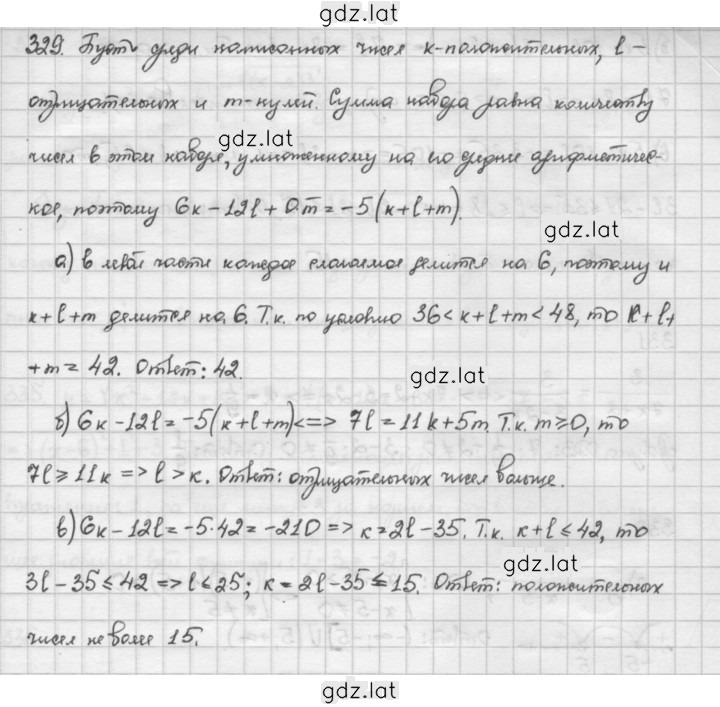 gdz.lat
329. Пусть среди написанных чисел к-положительных, l -
отрицательных и m-нулей. Сумма набора равна количеству
gdz.lat
чисел в этом наборе, умноженному на его средние арифметичес-
кое, поэтому 6к-12l+0.m=-5(к+l+m).
а) в левой части каждое слагаемое делится на 6, поэтому и
к+l+m делится на 6. Т.к. по условию 36<к+l+m<48, то к+l+
+m=42. Ответ: 42.
gdz.lat
б) 6к-12l=-5(к+l+m)<=> 7l=11к+5m. Т.к. m≥0, то
7l≥11к=>l>к. Ответ: отрицательных чисел больше.
в) 6к-12l=-5·42=-210=>к=2l-35. Т.к. к+l≤42, то
gdz.lat
3l-35≤42=>l≤25; к=2l-35≤15. Ответ: положительных
чисел не более 15.
gdz.lat